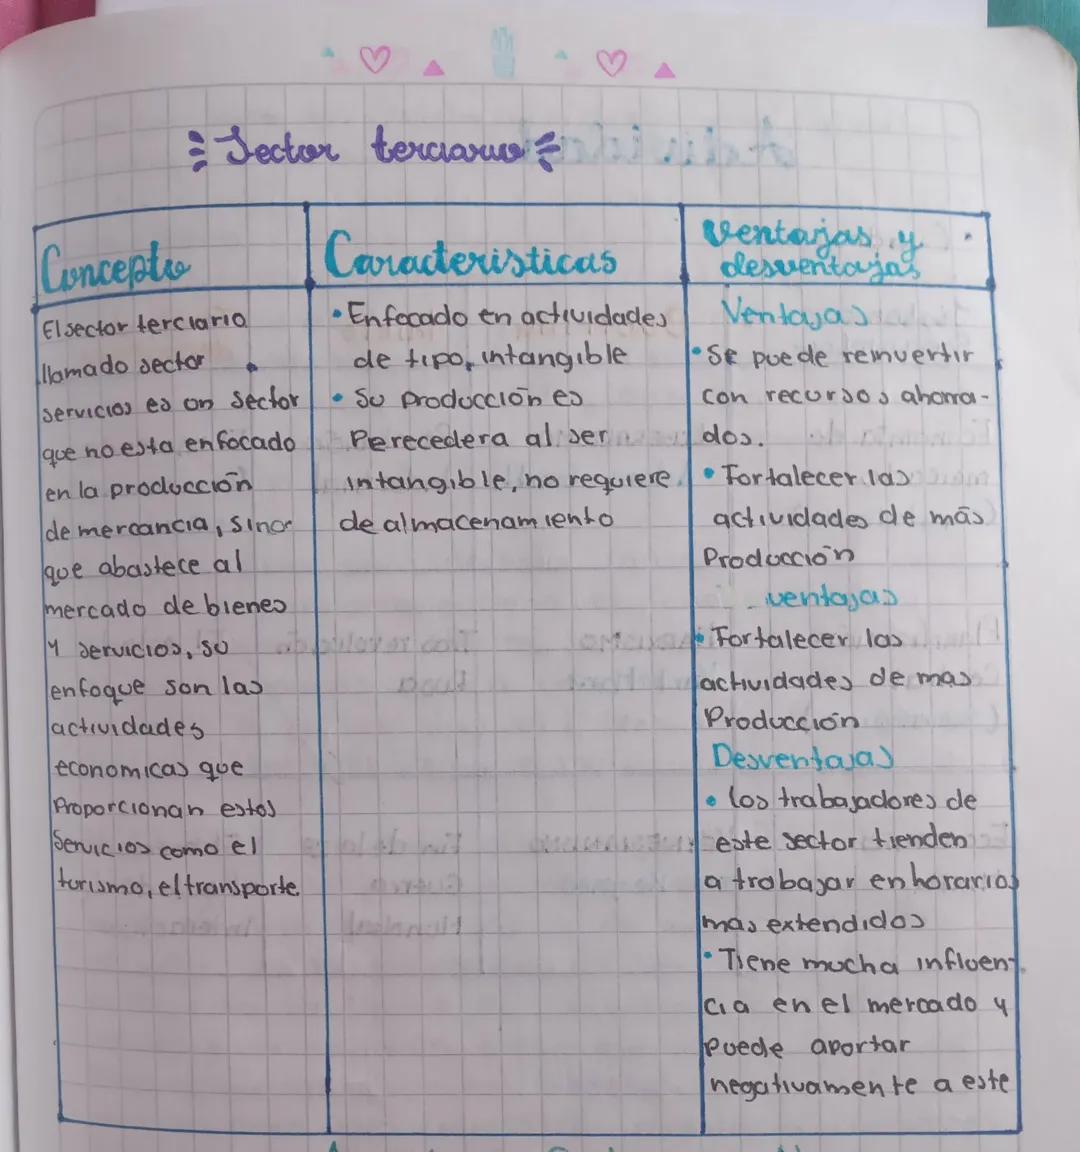 Sector terciario
Concepto
El sector terciario
llamado sector
servicios es un sector
que no esta enfocado
en la producción
de mercancia, sino
que abastece al
mercado de bienes
y servicios, su
enfoque son las
actividades
economicas que
Proporcionan estos
servicios como el
turismo, el transporte
Caracteristicas
• Enfocado en actividades
de tipo, intangible
• Su producción es
Perecedera al ser
intangible, no requiere
de almacenamiento
Ventajas y
desventajas
Ventajas
• Se puede reinvertir
con recursos ahorra-
dos.
• Fortalecer las
actividades de más
Producción
ventajas
• Fortalecer las
actividades de mas
Producción
Desventajas
• los trabajadores de
este sector tienden
a trabajar en horarios
mas extendidos
• Tiene mucha influen-
cia en el mercado y
puede aportar
negativamente a este